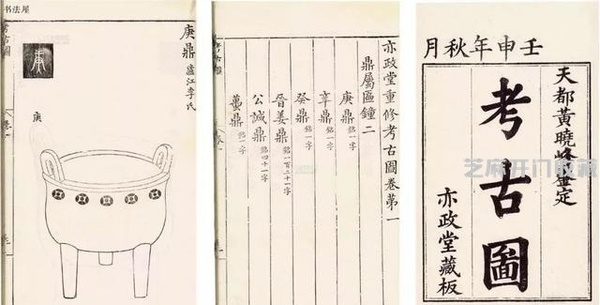 书法屋
庚鼎 廬江李氏
庚
考古圖
卷一
亦政堂重修考古圖卷第一
鼎屬 鐘二
庚鼎 銘一字
辛鼎 銘一字
癸鼎 銘一字
晉姜鼎 銘一百二十一字
公諴鼎 銘四十一字
蠆鼎 銘一字
壬申年秋月
天都黃曉峰鑒定
考古圖
亦政堂藏板
芝麻开门收藏